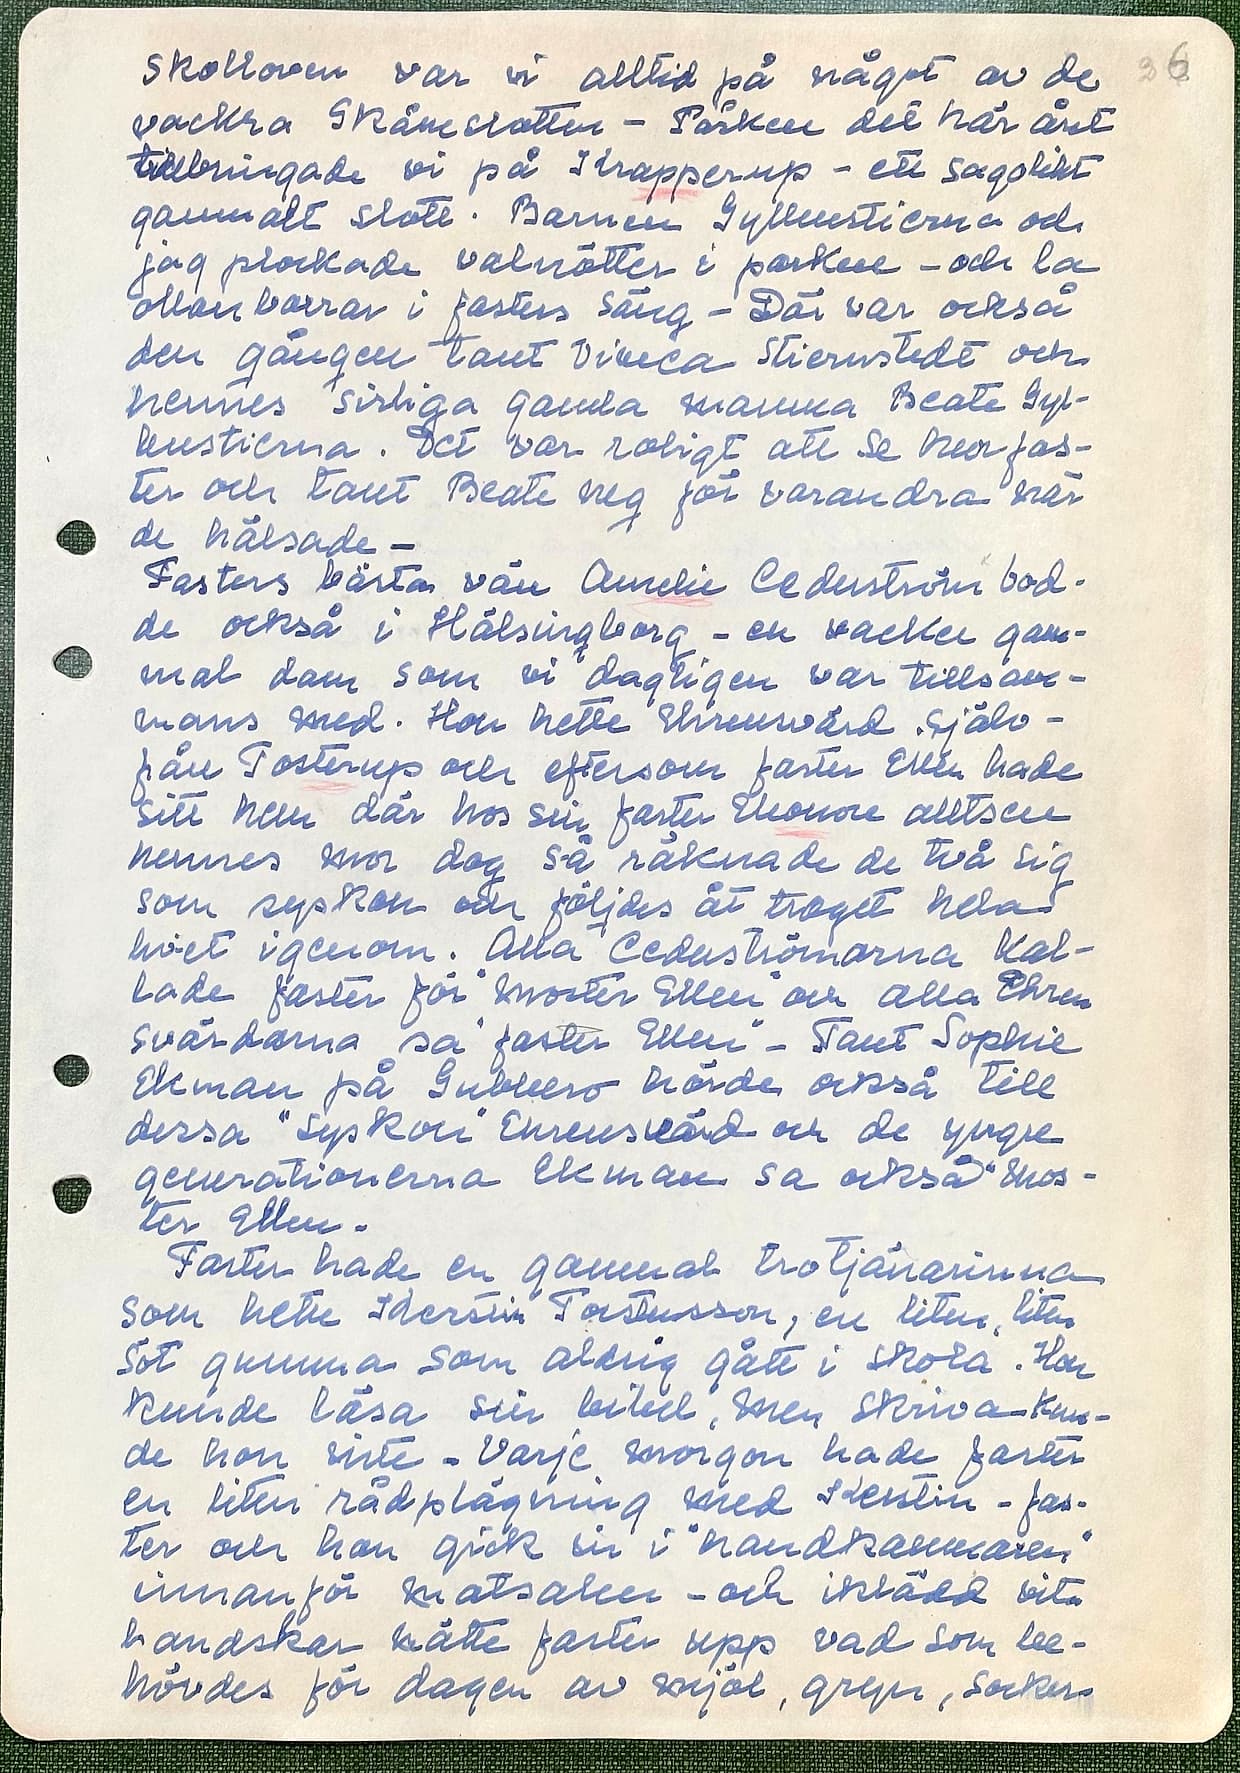 26
skolloven var vi alltid på något av de
vackra Skåneslotten – Påsken det här året
tillbringade vi på Krapperup – ett sagolikt
gammalt slott. Barnen Gyllenstierna och
jag plockade valnötter i parken – och la
ollonborrar i fasters säng – Där var också
den gången tant Viveca Stiernstedt och
hennes sirliga gamla mamma Beate Gyl-
lenstierna. Det var roligt att se hur fas-
ter och tant Beate neg för varandra när
de hälsade –
Fasters bästa vän Amelie Cederström bod-
de också i Hälsingborg – en vacker gam-
mal dam som vi dagligen var tillsam-
mans med. Hon hette Ehrensvärd själv –
från Tosterup och eftersom faster Ellen hade
sitt hem där hos sin faster Ebonore alltsen
hennes mor dog så räknade de två sig
som syskon och följdes åt troget hela
livet igenom. Alla Cederströmarna kal-
lade faster för "moster Ellen" och alla Ehren
svärdarna sa "faster Ellen" – Tant Sophie
Ekman på Gubbero hörde också till
dessa "syskon" Ehrensvärd och de yngre
generationerna Ekman sa också "Mos-
ter Ellen –
Faster hade en gammal trotjänarinna
som hette Kerstin Torstensson, en liten, liten
söt gumma som aldrig gått i skola. Hon
kunde läsa sin bibel, men skriva kun-
de hon inte – Varje morgon hade faster
en liten rådplägning med Kerstin – fas-
ter och hon gick in i "handkammaren"
innanför matsalen – och iklädd vita
handskar mätte faster upp vad som be-
hövdes för dagen av mjöl, gryn, socker